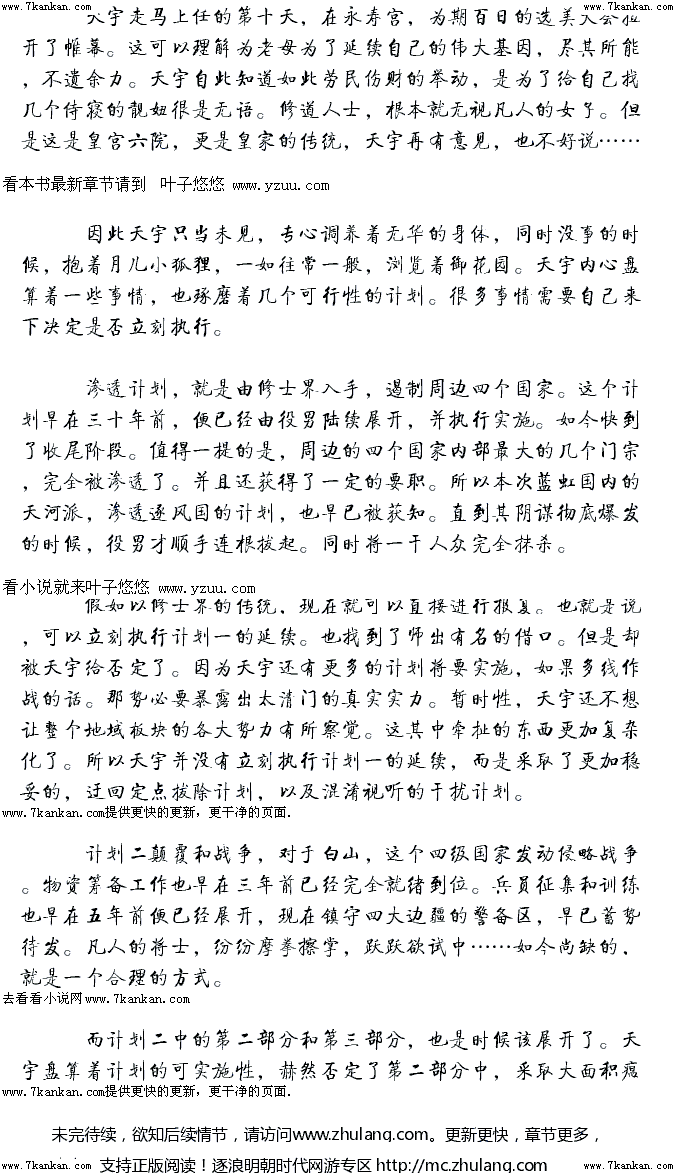 www.7kankan.com www.7kankan.com
天宇走马上任的第十天，在永寿宫，为期百日的选美大会拉
开了帷幕。这可以理解为老母为了延续自己的伟大基因，尽其所能
，不遗余力。天宇自此知道如此劳民伤财的举动，是为了给自己找
几个侍寝的靓妞很是无语。修道人士，根本就无视凡人的女子。但
是这是皇宫六院，更是皇家的传统，天宇再有意见，也不好说……
看本书最新章节请到 叶子悠悠 www.yzuu.com
因此天宇只当未见，专心调养着无华的身体，同时没事的时
候，抱着月儿小狐狸，一如往常一般，浏览着御花园。天宇内心盘
算着一些事情，也琢磨着几个可行性的计划。很多事情需要自己来
下决定是否立刻执行。
渗透计划，就是由修士界入手，遏制周边四个国家。这个计
划早在三十年前，便已经由役男陆续展开，并执行实施。如今快到
了收尾阶段。值得一提的是，周边的四个国家内部最大的几个门宗
，完全被渗透了。并且还获得了一定的要职。所以本次蓝虹国内的
天河派，渗透逐风国的计划，也早已被获知。直到其阴谋彻底爆发
的时候，役男才顺手连根拔起。同时将一干人众完全抹杀。
看小说就来叶子悠悠 www.yzuu.com
假如以修士界的传统，现在就可以直接进行报复。也就是说
，可以立刻执行计划一的延续。也找到了师出有名的借口。但是却
被天宇给否定了。因为天宇还有更多的计划将要实施，如果多线作
战的话。那势必要暴露出太清门的真实实力。暂时性，天宇还不想
让整个地域板块的各大势力有所察觉。这其中牵扯的东西更加复杂
化了。所以天宇并没有立刻执行计划一的延续，而是采取了更加稳
妥的，迂回定点拔除计划，以及混淆视听的干扰计划。
www.7kankan.com提供更快的更新，更干净的页面.
计划二颠覆和战争，对于白山，这个四级国家发动侵略战争
。物资筹备工作也早在三年前已经完全就绪到位。兵员征集和训练
也早在五年前便已经展开，现在镇守四大边疆的警备区，早已蓄势
待发。凡人的将士，纷纷摩拳擦掌，跃跃欲试中……如今尚缺的，
就是一个合理的方式。
去看看小说网www.7kankan.com
而计划二中的第二部分和第三部分，也是时候该展开了。天
宇盘算着计划的可实施性，赫然否定了第二部分中，采取大面积瘟
www.7kankan.com提供更快的更新，更干净的页面.
未完待续，欲知后续情节，请访问www.zhulang.com。更新更快，章节更多，
支持正版阅读！逐浪明朝时代网游专区 http://mc.zhulang.com
www.7kankan.com www.7kankan.com